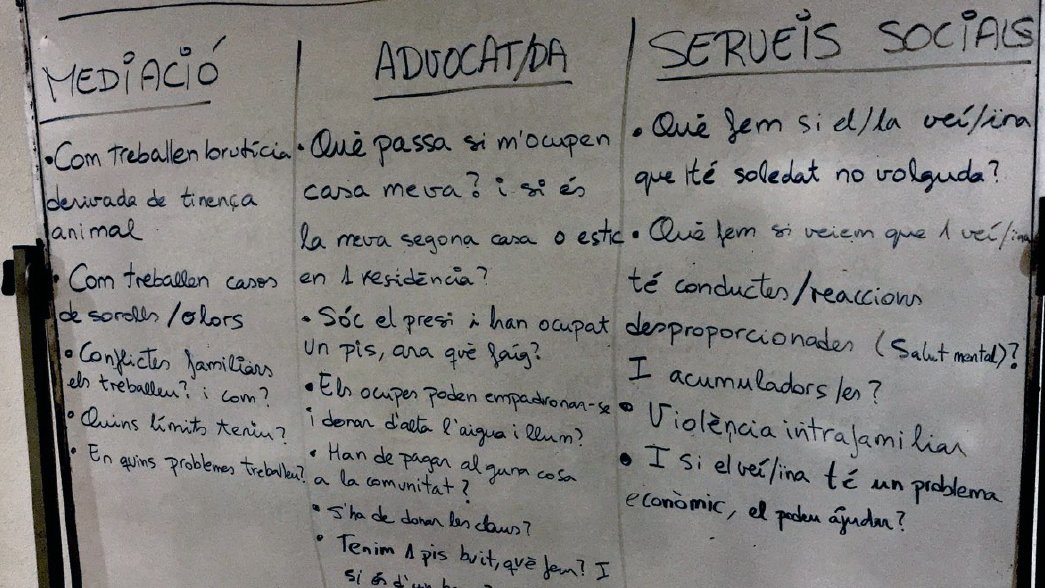 MEDIACIÓ
• Com treballen brutícia
derivada de tinença
animal
• Com treballen casos
de sorolls / olors
• Conflictes familiars
els treballeu? i com?
• Quins límits teniu?
• En quins problemes treballeu?
ADVOCAT/DA
• Què passa si m'ocupen
casa meva? i si és
la meva segona casa o estic
en 1 residència?
• Sóc el presi i han ocupat
un pis, ara què faig?
• Els ocupes poden empadronar-se
i donar d'alta l'aigua i llum?
• Han de pagar alguna cosa
a la comunitat?
• S'ha de donar les claus?
• Tenim 1 pis buit, què fem? I
si és d'un
SERVEIS SOCIALS
• Què fem si el/la veí/ïna
que té soledat no volguda?
• Què fem si veiem que 1 veí/ïna
té conductes/reaccions
desproporcionades (Salut mental)?
I acumuladors/es?
• Violència intrafamiliar
• I si el veí/ina té un problema
econòmic, el podeu ajudar?